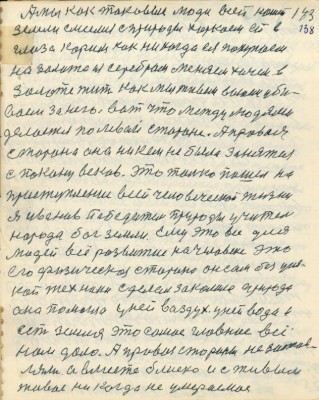 А мы как таковые люди всей нашей 143
земли смеемся природе харкаем ей в 138
глаза
как никогда ея покупаем
на золото и серебром меняем хочем в
Золоте жить как мы живем воюем уби-
ваем за него. вот что между людями
делается по левой стороне. А правая
сторона она никем не была Занятая
с покону веков. Это только пошел на
преступление всей человеческой жизни
я Иванов Победитель природы учитель
народа бог земли. Ему это все для
людей всё развитие на человеке Это
Его физическая сторона он сам без
кой техники сделал законно природа
она помогла у ней воздух у ней вода и
есть земля это самое главное всё
нам дало. А правая сторона не
вместе близко и с живым
живое никогда не умираемое